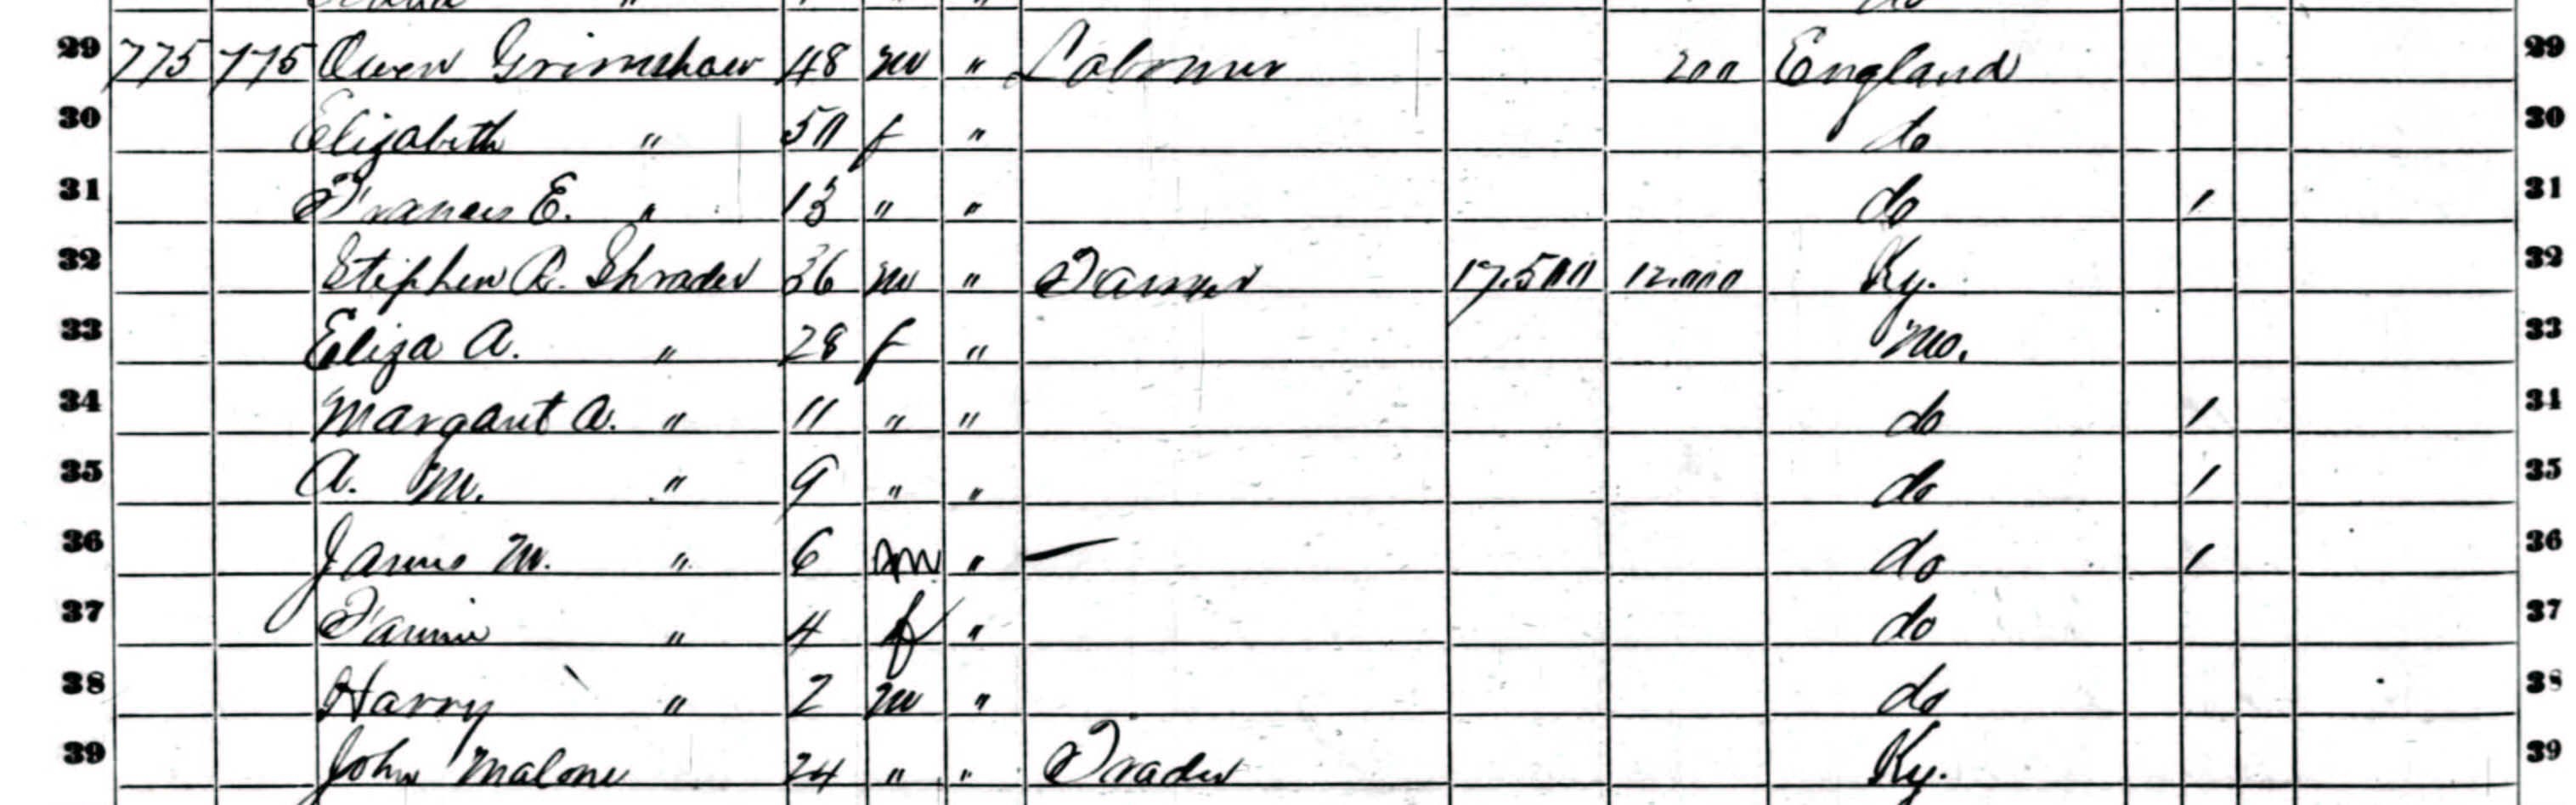 29 775 775 Owen Grimshaw 48 m " Labourer 200 England 29
30 Elizabeth " 50 f " do 30
31 Frances E. " 13 " " do / 31
32 Stephen R. Shrader 36 m " Farmer 17,500 12,000 Ky. 32
33 Eliza A. " 28 f " Mo. 33
34 Margaret A. " 11 " " do / 34
35 A. M. " 9 " " do / 35
36 James M. " 6 m " do / 36
37 Fannie " 4 f " do 37
38 Harry " 2 m " do 38
39 John Malone 24 " " Trader Ky. 39